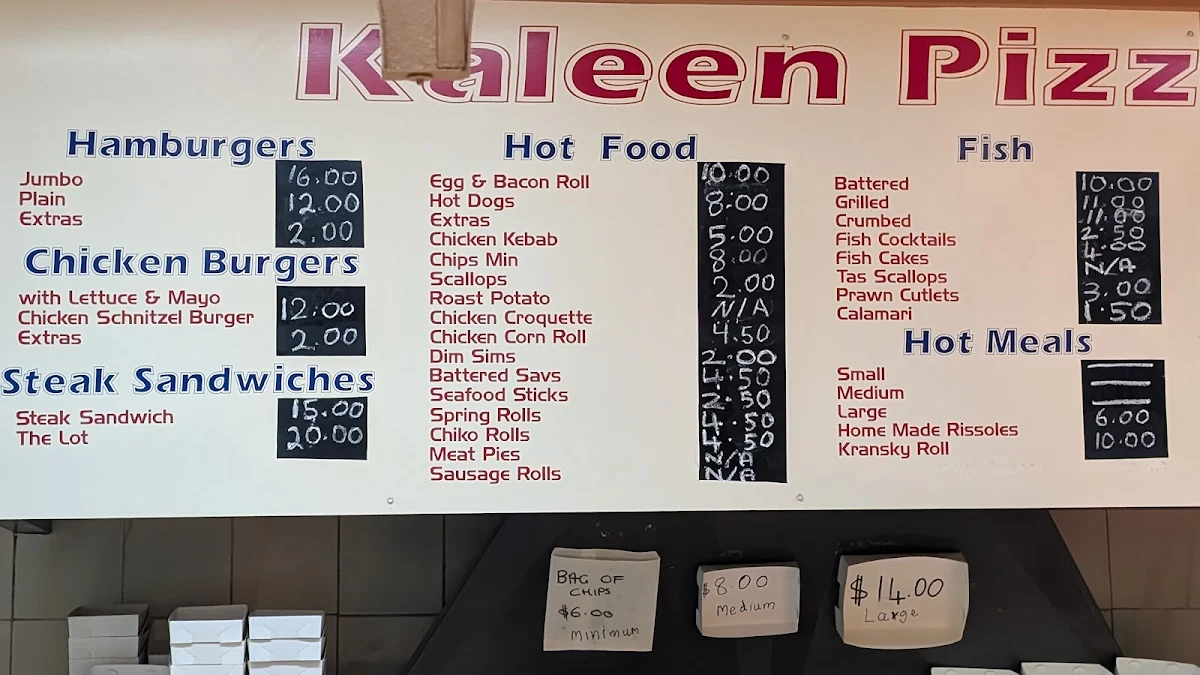 Kaleen Pizz
Hamburgers
Jumbo 16.00
Plain 12.00
Extras 2.00
Chicken Burgers
with Lettuce & Mayo 12.00
Chicken Schnitzel Burger
Extras 2.00
Steak Sandwiches
Steak Sandwich 15.00
The Lot 20.00
Hot Food
Egg & Bacon Roll
Hot Dogs
Extras
Chicken Kebab
Chips Min
Scallops
Roast Potato
Chicken Croquette
Chicken Corn Roll
Dim Sims
Battered Savs
Seafood Sticks
Spring Rolls
Chiko Rolls
Meat Pies
Sausage Rolls
10.00
8.00
5.00
8.00
2.00
N/A
4.50
2.00
4.50
2.50
4.50
4.50
N/A
N/A
Fish
Battered
Grilled
Crumbed
Fish Cocktails
Fish Cakes
Tas Scallops
Prawn Cutlets
Calamari
10.00
11.00
11.00
2.50
4.00
N/A
3.00
1.50
Hot Meals
Small
Medium
Large
Home Made Rissoles 6.00
Kransky Roll 10.00
BAG OF
CHIPS
$6.00
minimum
$8.00
Medium
$14.00
Large